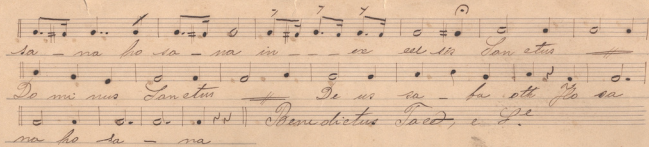 sa - na ho sa - na in - - - ex cel sis Sanctus
Do mi nus Sanctus De us sa - ba oth Ho sa
Benedictus Taced, e Se
na ho sa - na